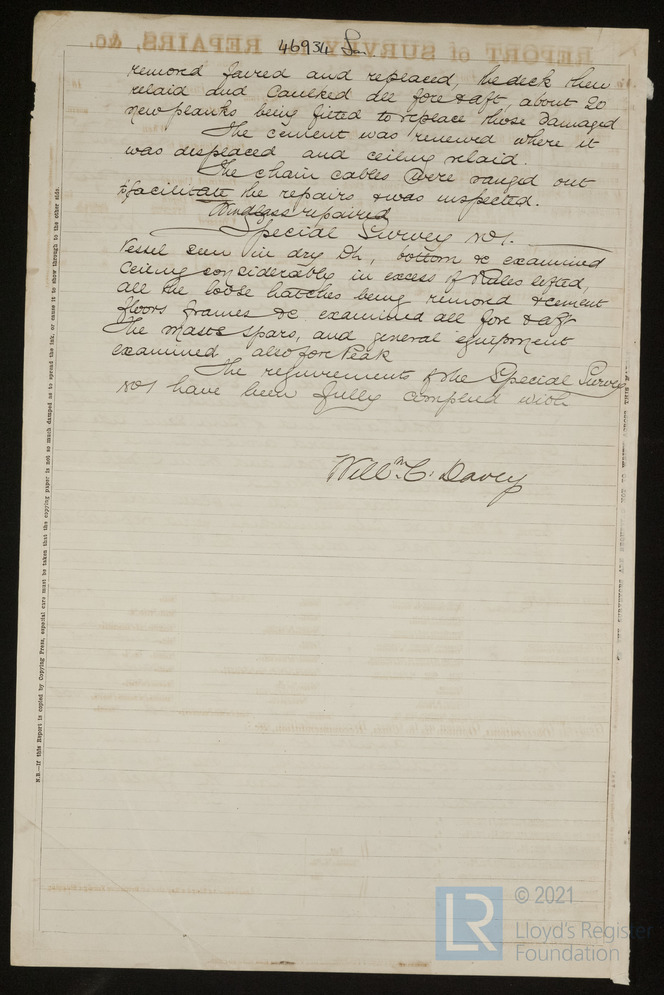 46934
removed faired and replaced, the deck then
relaid and Caulked all fore & aft, about 20
new planks being fitted to replace those Damaged
The cement was renewed where it
was displaced and ceiling relaid.
The chain cables were ranged out
to facilitate the repairs & was inspected.
Windlass repaired
Special Survey No 1.
Vessel seen in dry Dk, bottom &c examined
Ceiling considerably in excess of Rules lifted,
all the loose hatches being removed & cement
floors frames &c examined all fore & aft
The masts spars, and general equipment
examined also fore Peak
The requirements of the Special Survey
No 1 have been fully complied with
Willm C. Davey
N.B.—If this Report is copied by Copying Press, especial care must be taken that the copying paper is not so much damped as to spread the ink, or cause it to show through to the other side.
REPORT of SURVEY for REPAIRS, &c.
LR
© 2021
Lloyd's Register
Foundation